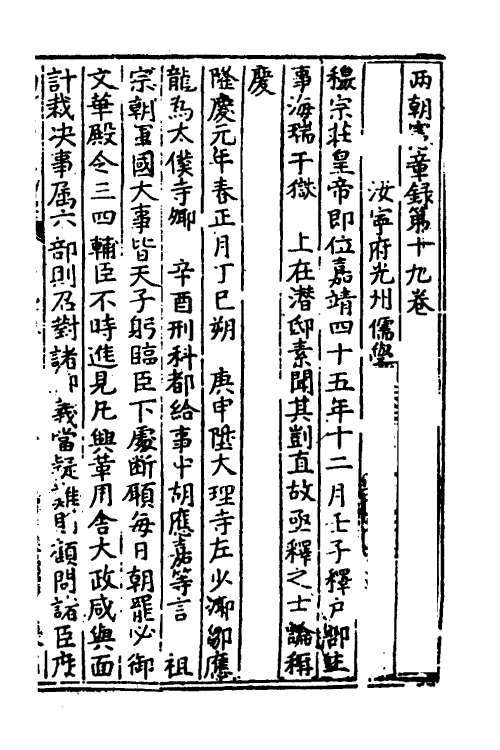 兩朝憲章錄第十九卷
汝寧府光州儒學
穆宗莊皇帝即位嘉靖四十五年十二月壬子釋戶部主
事海瑞于獄　上在潛邸素聞其剴直故亟釋之士論稱
慶
隆慶元年春正月丁巳朔　庚申陞大理寺左少卿鄒應
龍為太僕寺卿　辛酉刑科都給事中胡應嘉等言　祖
宗朝軍國大事皆天子躬臨臣下處斷願每日朝罷必御
文華殿令三四輔臣不時進見凡興革用舍大政咸與面
計裁决事屬六部則召對諸卿義當疑難則顧問諸臣庶